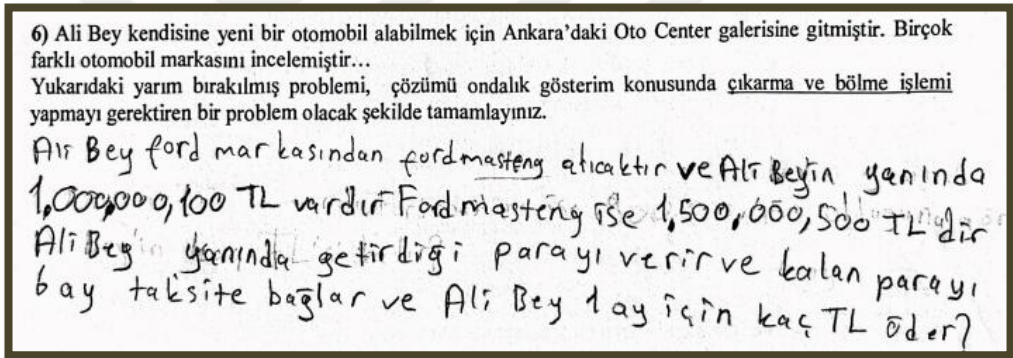 6) Ali Bey kendisine yeni bir otomobil alabilmek için Ankara'daki Oto Center galerisine gitmiştir. Birçok
farklı otomobil markasını incelemiştir…
Yukarıdaki yarım bırakılmış problemi, çözümü ondalık gösterim konusunda çıkarma ve bölme işlemi
yapmayı gerektiren bir problem olacak şekilde tamamlayınız.
Ali Bey ford markasından fordmasteng alıcaktır ve Ali Beyin yanında
1,000,000,100 TL vardır Fordmasteng ise 1,500,000,500 TL dir
Ali Bey yanında getirdiği parayı verir ve kalan parayı
6 ay taksite bağlar ve Ali Bey 1 ay için kaç TL öder?